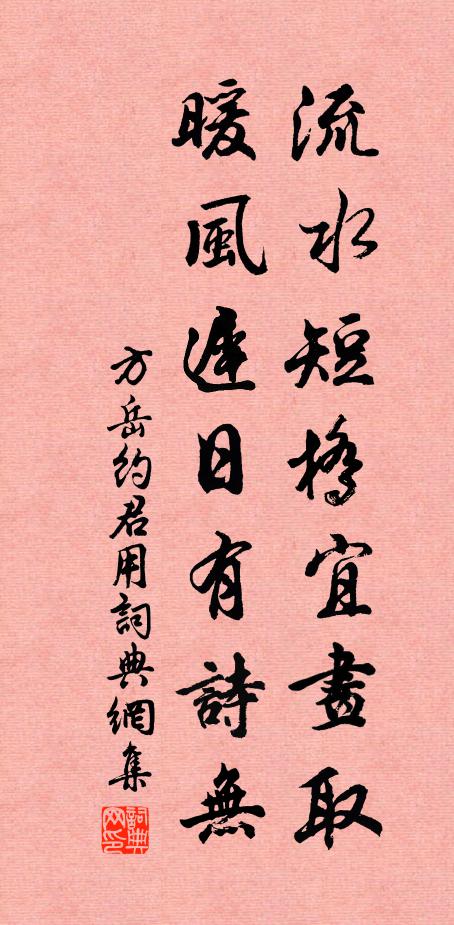 流水短橋宜畫取
暖風遲日有詩無
方岳約君用詞典網集
詞典网印